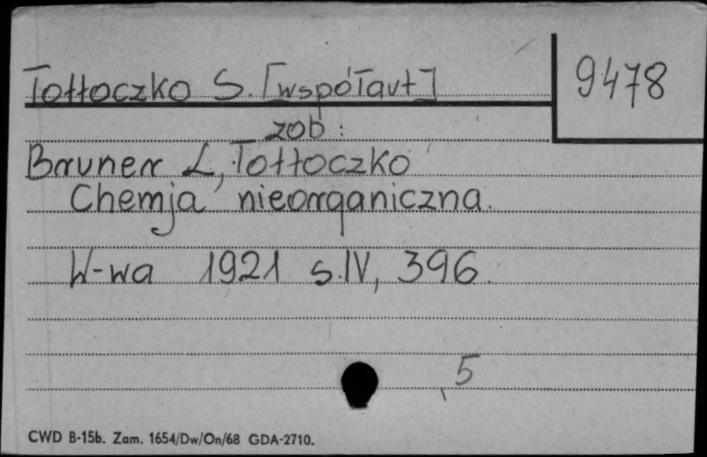 Tołłoczko S. [współaut]
9478
zob:
Bruner L, Tołłoczko
Chemja nieorganiczna.
W-wa 1921 s.IV, 396.
5
CWD B-15b. Zam. 1654/Dw/On/68 GDA-2710.